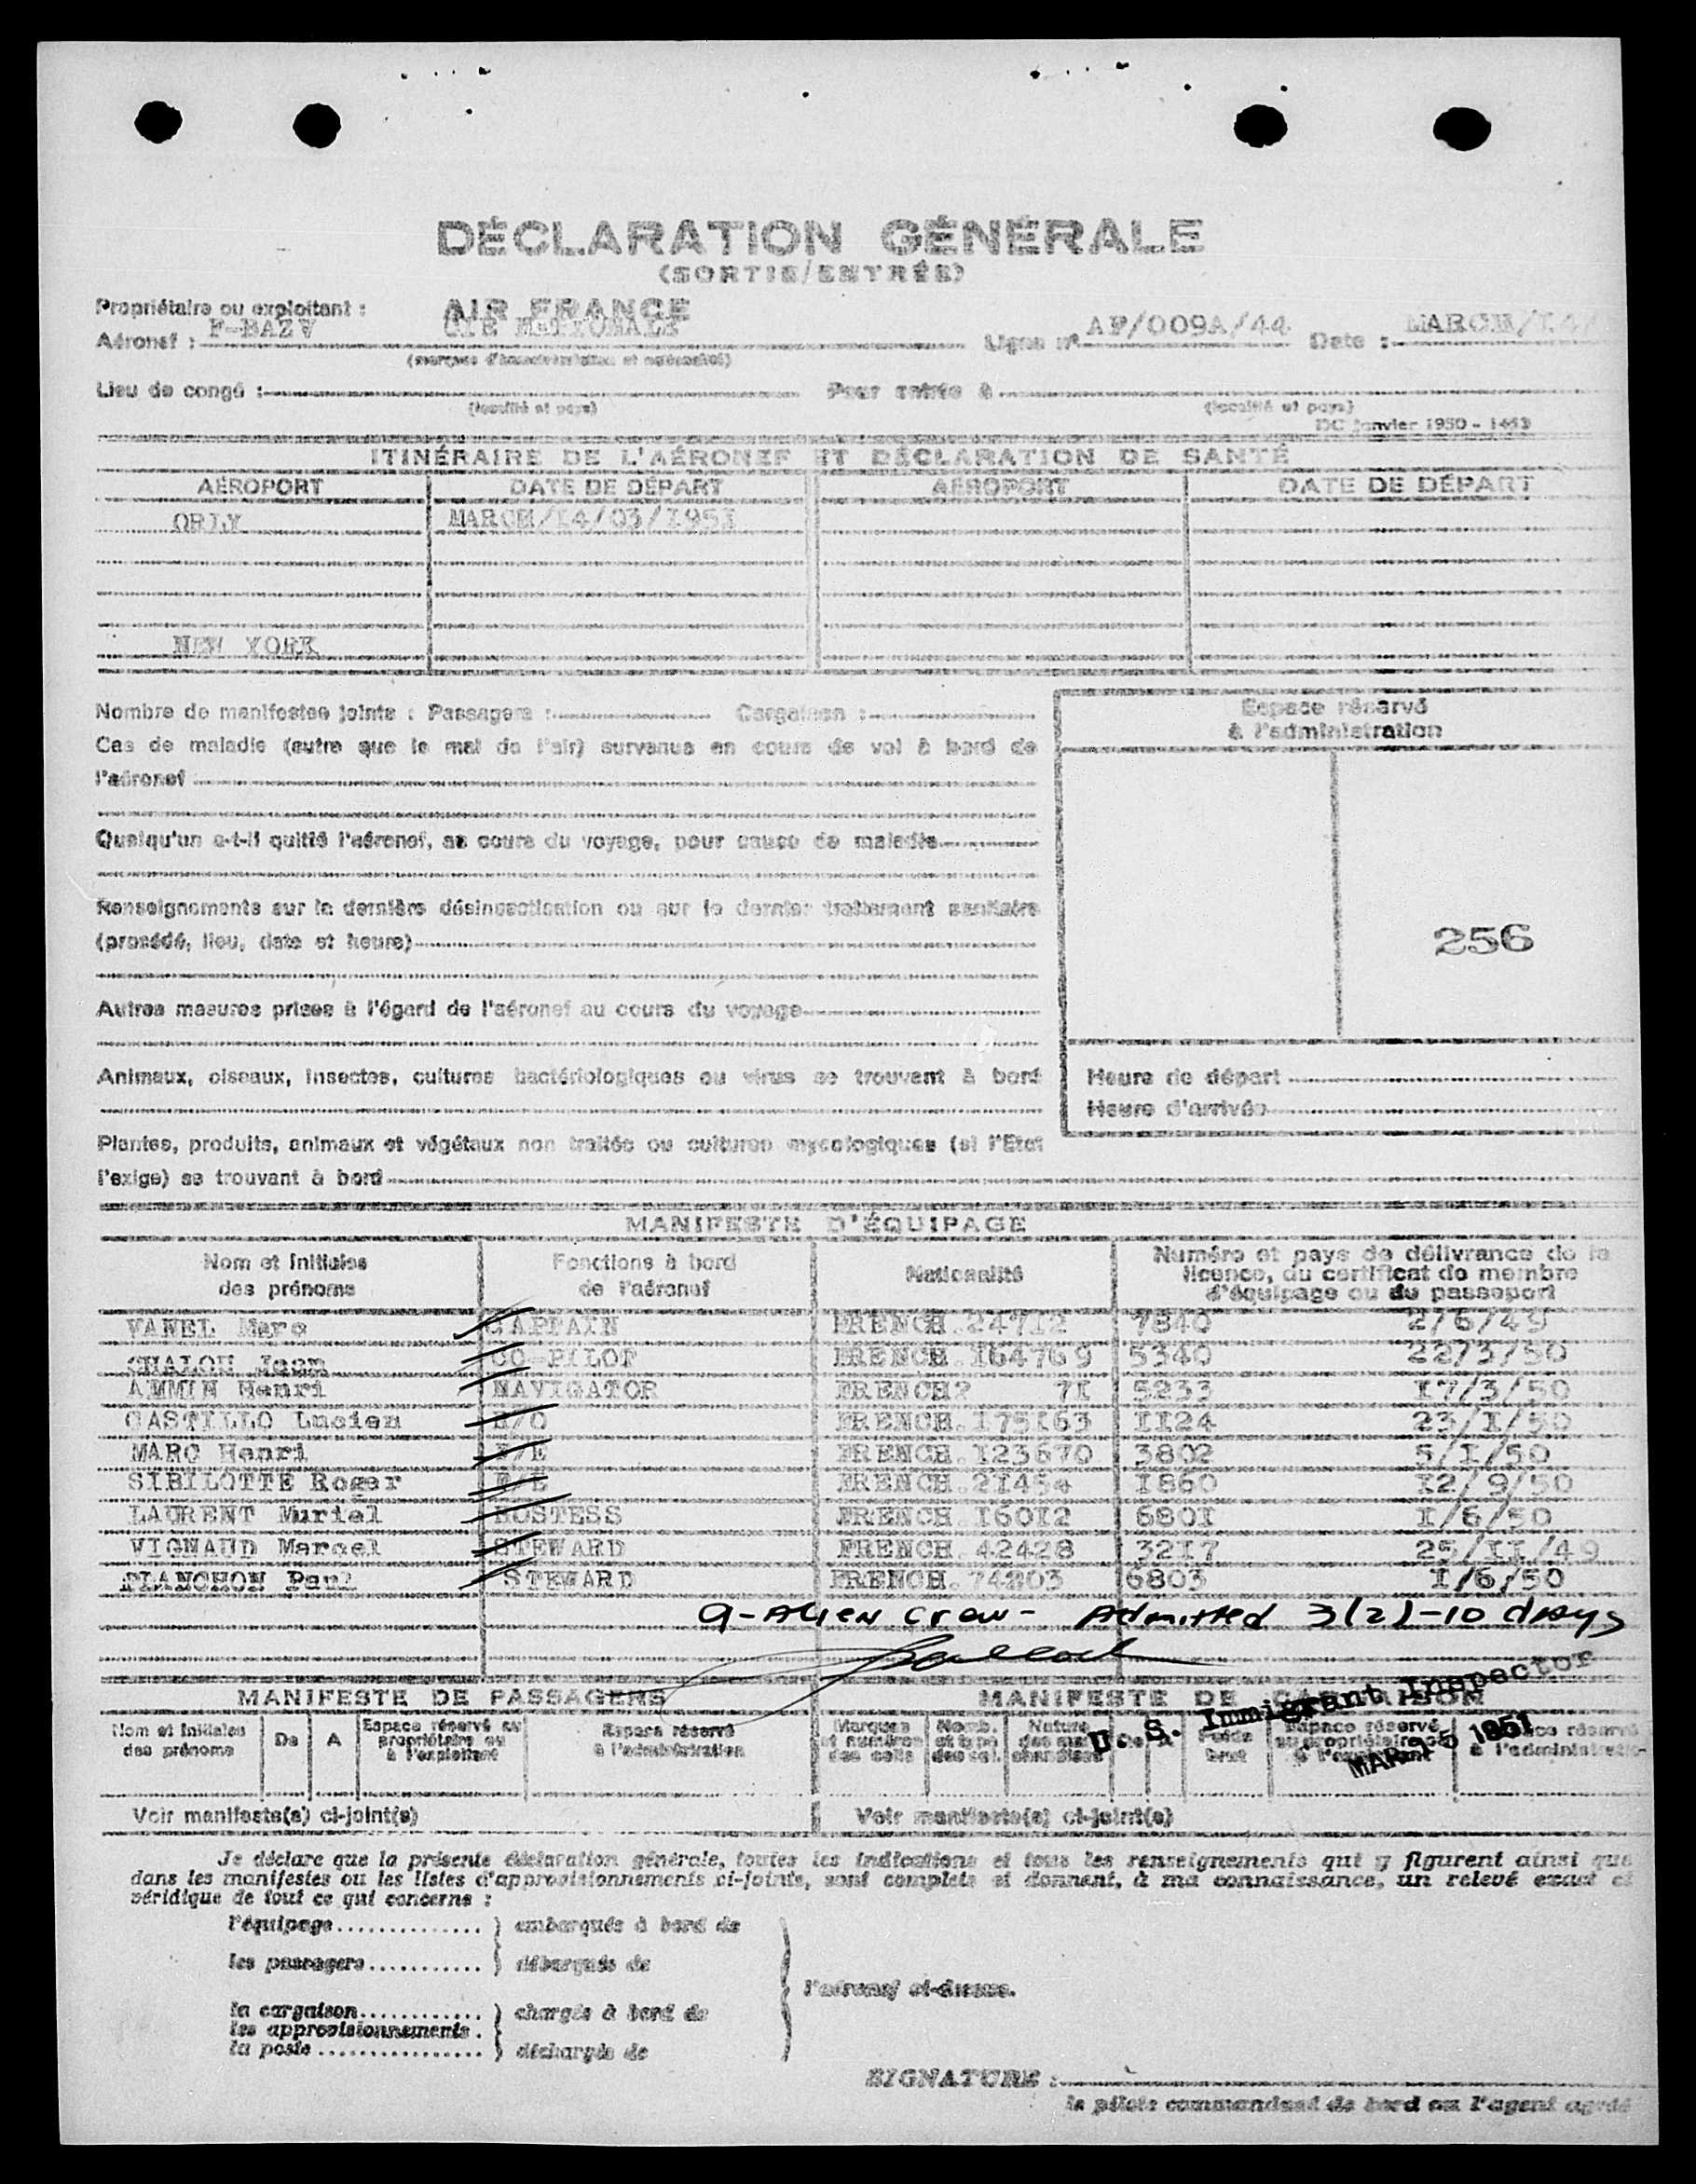 DÉCLARATION GÉNÉRALE
(SORTIE/ENTRÉE)
Propriétaire ou exploitant : AIR FRANCE
Aéronef : F-BAZV Ligne n° AF/009A/44 Date : MARCH/14/
(marques d'immatriculation et nationalité)
Lieu de congé : Pour entrée à
(localité et pays) (localité et pays)
DC Janvier 1950 - 1453
ITINÉRAIRE DE L'AÉRONEF ET DÉCLARATION DE SANTÉ
AÉROPORT DATE DE DÉPART AÉROPORT DATE DE DÉPART
ORLY MARCH/I4/03/I95I
NEW YORK
Nombre de manifestes joints : Passagers : Cargaison :
Espace réservé
à l'administration
Cas de maladie (autre que le mal de l'air) survenus en cours de vol à bord de
l'aéronef
Quelqu'un a-t-il quitté l'aéronef, au cours du voyage, pour cause de maladie
Renseignements sur la dernière désinsectisation ou sur le dernier traitement sanitaire
(procédé, lieu, date et heure)
256
Autres mesures prises à l'égard de l'aéronef au cours du voyage
Animaux, oiseaux, insectes, cultures bactériologiques ou virus se trouvant à bord
Heure de départ
Heure d'arrivée
Plantes, produits, animaux et végétaux non traités ou cultures mycologiques (si l'Etat
l'exige) se trouvant à bord
MANIFESTE D'ÉQUIPAGE
Nom et initiales des prénoms Fonctions à bord de l'aéronef Nationalité Numéro et pays de délivrance de la licence, du certificat de membre d'équipage ou du passeport
VANEL Marc CAPTAIN FRENCH.247I2 7840 2/6/49
CHALOU Jean CO-PILOT FRENCH.I64769 5340 22/3/50
AMMIN Henri NAVIGATOR FRENCH? 7I 5233 I7/3/50
CASTILLO Lucien R/O FRENCH.I75I63 II24 23/I/50
MARC Henri F/E FRENCH.I23670 3802 5/I/50
SIBILOTTE Roger F/E FRENCH.2I454 I860 I2/9/50
LAURENT Muriel HOSTESS FRENCH I60I2 680I I/6/50
VIGNAUD Marcel STEWARD FRENCH.42428 32I7 25/II/49
PLANCHON Paul STEWARD FRENCH.74203 6803 I/6/50
9-Alien Crew- Admitted 3(2)-10 days
U. S. Immigrant Inspector
MAR 15 1951
MANIFESTE DE PASSAGERS MANIFESTE DE CARGAISON
Nom et initiales des prénoms De A Espace réservé au propriétaire ou à l'exploitant Espace réservé à l'administration Marques et numéros des colis Nomb. et type des col. Nature des marchandises Poids brut Espace réservé au propriétaire ou à l'exploitant Espace réservé à l'administration
Voir manifeste(s) ci-joint(s) Voir manifeste(s) ci-joint(s)
Je déclare que la présente déclaration générale, toutes les indications et tous les renseignements qui y figurent ainsi que
dans les manifestes ou les listes d'approvisionnements ci-joints, sont complets et donnent, à ma connaissance, un relevé exact et
véridique de tout ce qui concerne :
l'équipage.............. } embarqués à bord de
les passagers........... } débarqués de
l'aéronef ci-dessus.
la cargaison............ } chargés à bord de
les approvisionnements .
la poste ................ } déchargés de
SIGNATURE :
le pilote commandant de bord ou l'agent agréé